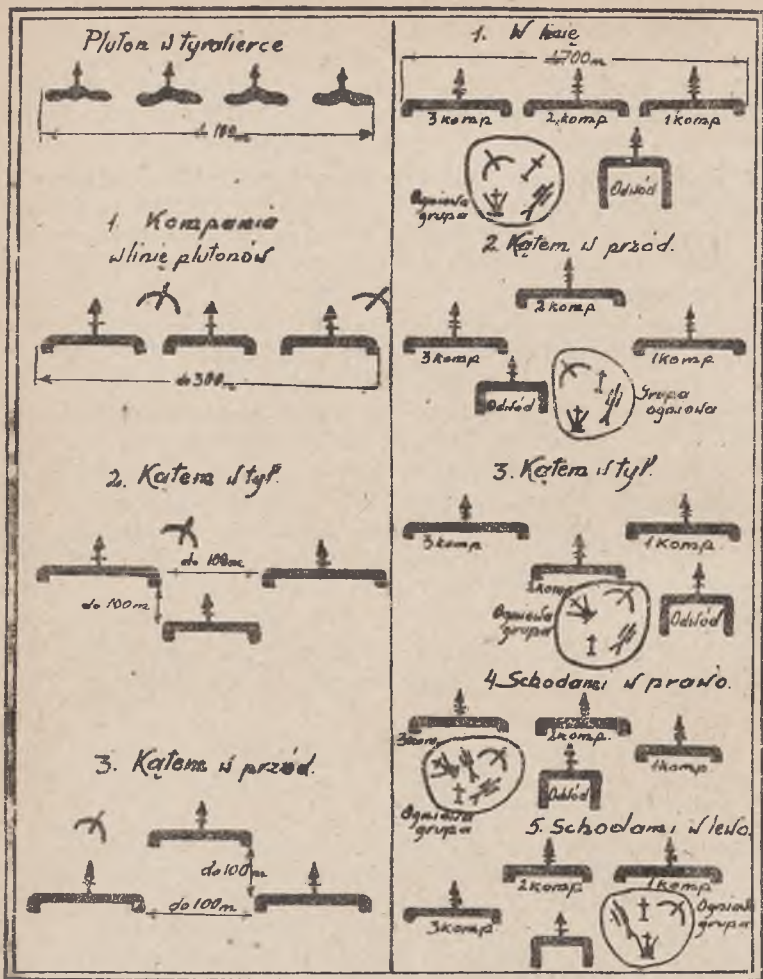 Pluton w tyralierce
100m
1. Kompania
w linię plutonów
do 300m
2. Kątem w tył.
do 100m
do 100m
3. Kątem w przód.
do 100m
do 100m
1. W linię
700m
3 komp
2 komp
1 komp
Ogniowa
grupa
Odwód
2. Kątem w przód.
2 komp
3 komp
1 komp
Odwód
Grupa
ogniowa
3. Kątem w tył.
3 komp
1 komp.
2 komp
Ogniowa
grupa
Odwód
4. Schodami w prawo.
3 kom
2 komp.
1 komp
Ogniowa
grupa
Odwód
5. Schodami w lewo.
2 komp
1 komp
3 komp
Ogniowa
grupa